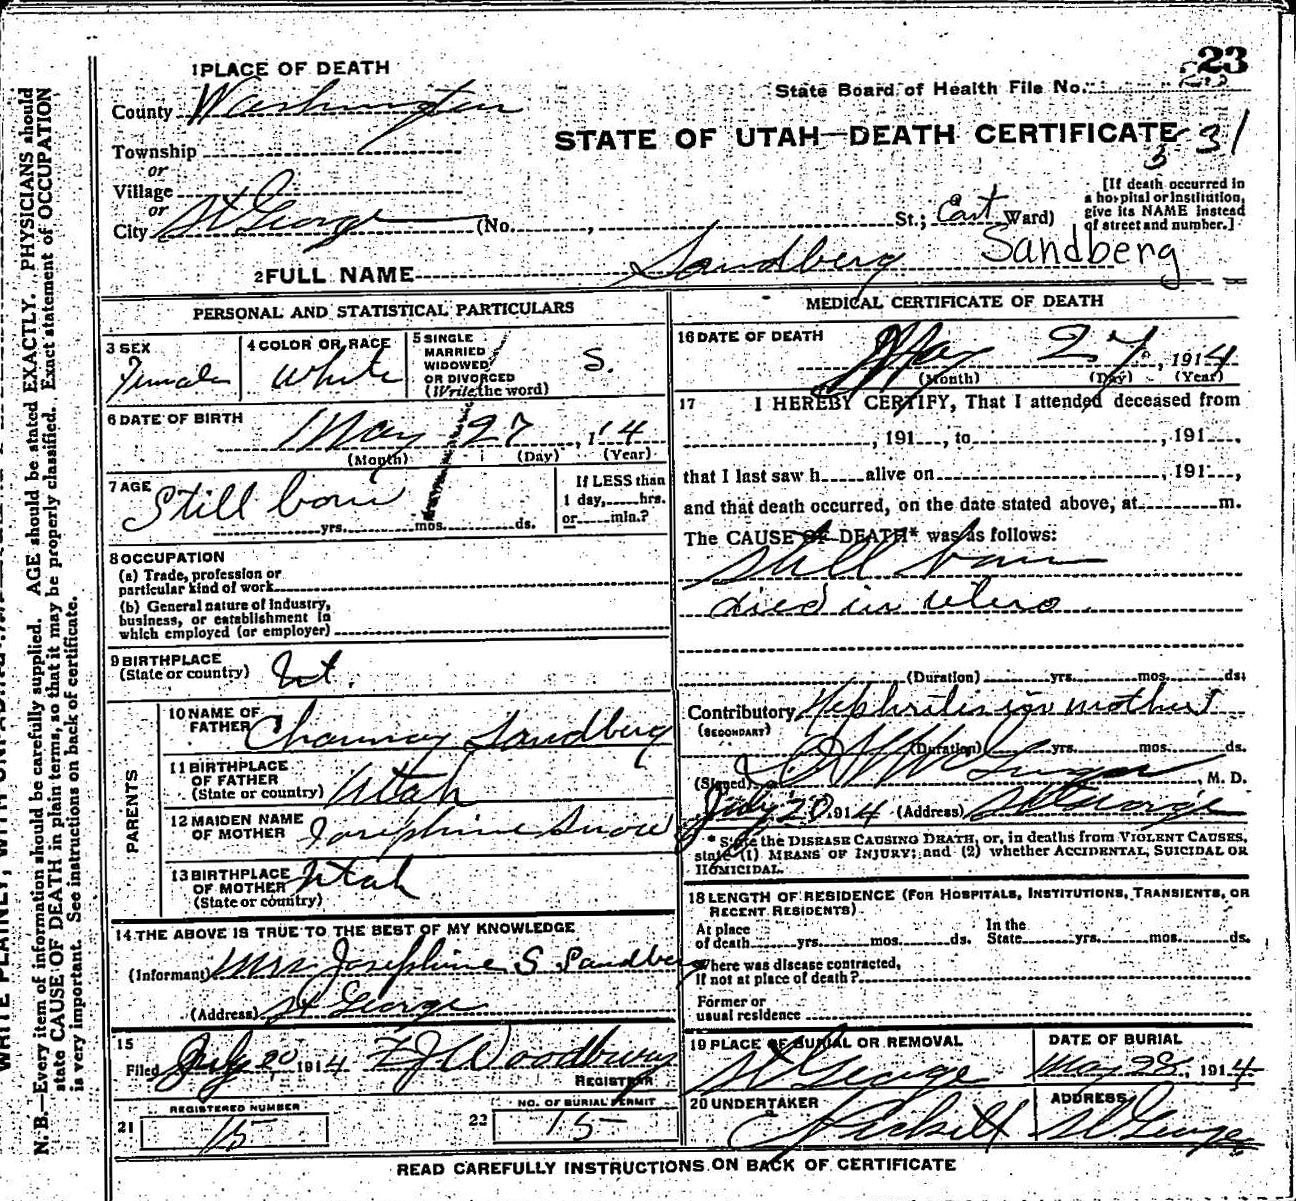 23
1 PLACE OF DEATH
State Board of Health File No.
County Washington
STATE OF UTAH—DEATH CERTIFICATE
3 31
Township
or
Village
or
City St George (No. , St.; East Ward)
[If death occurred in
a hospital or institution,
give its NAME instead
of street and number.]
2 FULL NAME Sandberg Sandberg
PERSONAL AND STATISTICAL PARTICULARS
3 SEX
Female
4 COLOR OR RACE
White
5 SINGLE
MARRIED
WIDOWED
OR DIVORCED
(Write the word)
S.
6 DATE OF BIRTH
May 27, 1'4
(Month) (Day) (Year)
7 AGE
Still born
yrs. mos. ds.
If LESS than
1 day, hrs.
or min.?
8 OCCUPATION
(a) Trade, profession or
particular kind of work
(b) General nature of industry,
business, or establishment in
which employed (or employer)
9 BIRTHPLACE
(State or country) Ut.
PARENTS
10 NAME OF
FATHER Chauncey Sandberg
11 BIRTHPLACE
OF FATHER
(State or country) Utah
12 MAIDEN NAME
OF MOTHER Josephine Snow
13 BIRTHPLACE
OF MOTHER
(State or country) Utah
14 THE ABOVE IS TRUE TO THE BEST OF MY KNOWLEDGE
(Informant) Mrs Josephine S Sandberg
(Address) St George
15
Filed July 20 1914 F J Woodbury
REGISTRAR
REGISTERED NUMBER
21 15
NO. OF BURIAL PERMIT
22 15
MEDICAL CERTIFICATE OF DEATH
16 DATE OF DEATH
May 27, 1914
(Month) (Day) (Year)
17 I HEREBY CERTIFY, That I attended deceased from
, 191 , to , 191 ,
that I last saw h alive on , 191 ,
and that death occurred, on the date stated above, at m.
The CAUSE OF DEATH* was as follows:
Still born
died in utero
(Duration) yrs. mos. ds.
Contributory Nephritis in mother
(SECONDARY)
(Duration) yrs. mos. ds.
(Signed) McGregor, M. D.
July 20 1914 (Address) St George
* State the DISEASE CAUSING DEATH, or, in deaths from VIOLENT CAUSES,
state (1) MEANS OF INJURY; and (2) whether ACCIDENTAL, SUICIDAL OR
HOMICIDAL.
18 LENGTH OF RESIDENCE (FOR HOSPITALS, INSTITUTIONS, TRANSIENTS, OR
RECENT RESIDENTS)
At place
of death yrs. mos. ds.
In the
State yrs. mos. ds.
Where was disease contracted,
if not at place of death?
Former or
usual residence
19 PLACE OF BURIAL OR REMOVAL
St George
DATE OF BURIAL
May 28, 1914
20 UNDERTAKER
ADDRESS
St George
READ CAREFULLY INSTRUCTIONS ON BACK OF CERTIFICATE
N. B.—Every item of information should be carefully supplied. AGE should be stated EXACTLY. PHYSICIANS should
state CAUSE OF DEATH in plain terms, so that it may be properly classified. Exact statement of OCCUPATION
is very important. See instructions on back of certificate.